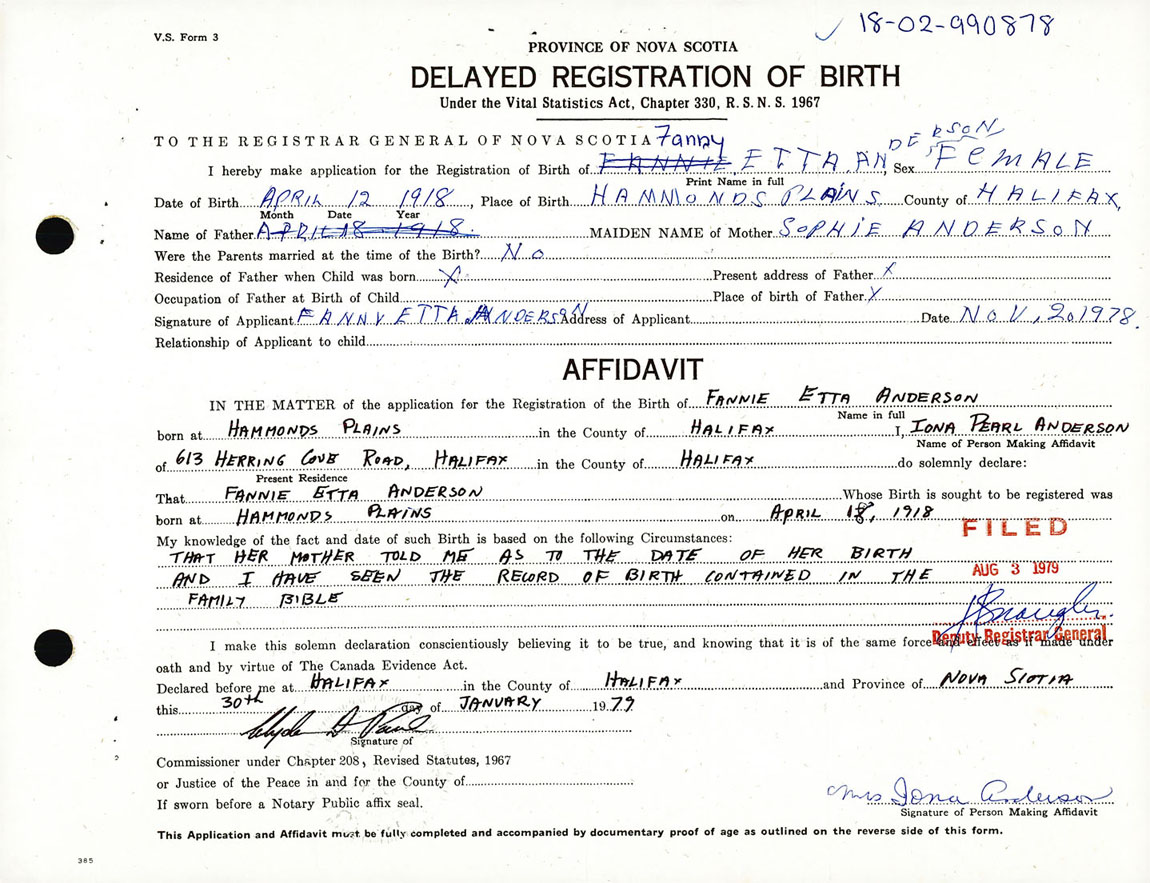 18-02-990878
V.S. Form 3
PROVINCE OF NOVA SCOTIA
DELAYED REGISTRATION OF BIRTH
Under the Vital Statistics Act, Chapter 330, R.S.N.S. 1967
TO THE REGISTRAR GENERAL OF NOVA SCOTIA Fanny
I hereby make application for the Registration of Birth of FANNIE ETTA ANDERSON Sex FEMALE
Print Name in full
Date of Birth APRIL 12 1918, Place of Birth HAMMONDS PLAINS County of HALIFAX
Month Date Year
Name of Father APRIL 18 1918 MAIDEN NAME of Mother SOPHIE ANDERSON
Were the Parents married at the time of the Birth? No
Residence of Father when Child was born X Present address of Father X
Occupation of Father at Birth of Child Place of birth of Father X
Signature of Applicant FANNY ETTA ANDERSON Address of Applicant Date NOV, 20 1978.
Relationship of Applicant to child
AFFIDAVIT
IN THE MATTER of the application for the Registration of the Birth of FANNIE ETTA ANDERSON
Name in full
born at HAMMONDS PLAINS in the County of HALIFAX I, IONA PEARL ANDERSON
Name of Person Making Affidavit
of 613 HERRING COVE ROAD, HALIFAX in the County of HALIFAX do solemnly declare:
Present Residence
That FANNIE ETTA ANDERSON Whose Birth is sought to be registered was
born at HAMMONDS PLAINS on APRIL 18, 1918
FILED
My knowledge of the fact and date of such Birth is based on the following Circumstances:
THAT HER MOTHER TOLD ME AS TO THE DATE OF HER BIRTH
AND I HAVE SEEN THE RECORD OF BIRTH CONTAINED IN THE
AUG 3 1979
FAMILY BIBLE
Deputy Registrar General
I make this solemn declaration conscientiously believing it to be true, and knowing that it is of the same force and effect as if made under
oath and by virtue of The Canada Evidence Act.
Declared before me at HALIFAX in the County of HALIFAX and Province of NOVA SIOTIA
this 30th day of JANUARY 1979
Signature of
Commissioner under Chapter 208, Revised Statutes, 1967
or Justice of the Peace in and for the County of
If sworn before a Notary Public affix seal.
Mrs Iona Anderson
Signature of Person Making Affidavit
This Application and Affidavit must be fully completed and accompanied by documentary proof of age as outlined on the reverse side of this form.
385